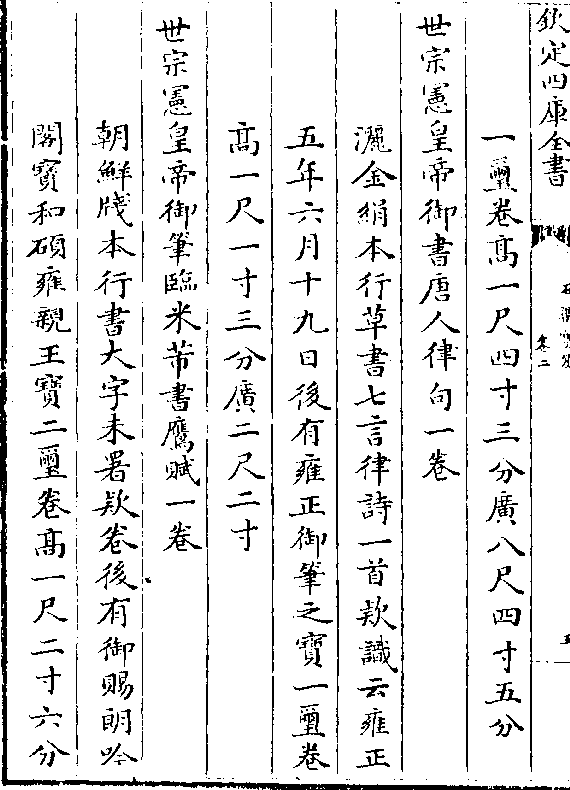 欽定四庫全書
卷二
一璽卷高一尺四寸三分廣八尺四寸五分
世宗憲皇帝御書唐人律句一卷
灑金絹本行草書七言律詩一首款識云雍正
五年六月十九日後有雍正御筆之寶一璽卷
高一尺一寸三分廣二尺二寸
世宗憲皇帝御筆臨米芾書鷹賦一卷
朝鮮牋本行書大字未署欵卷後有御賜朗吟
閣寶和碩雍親王寶二璽卷高一尺二寸六分